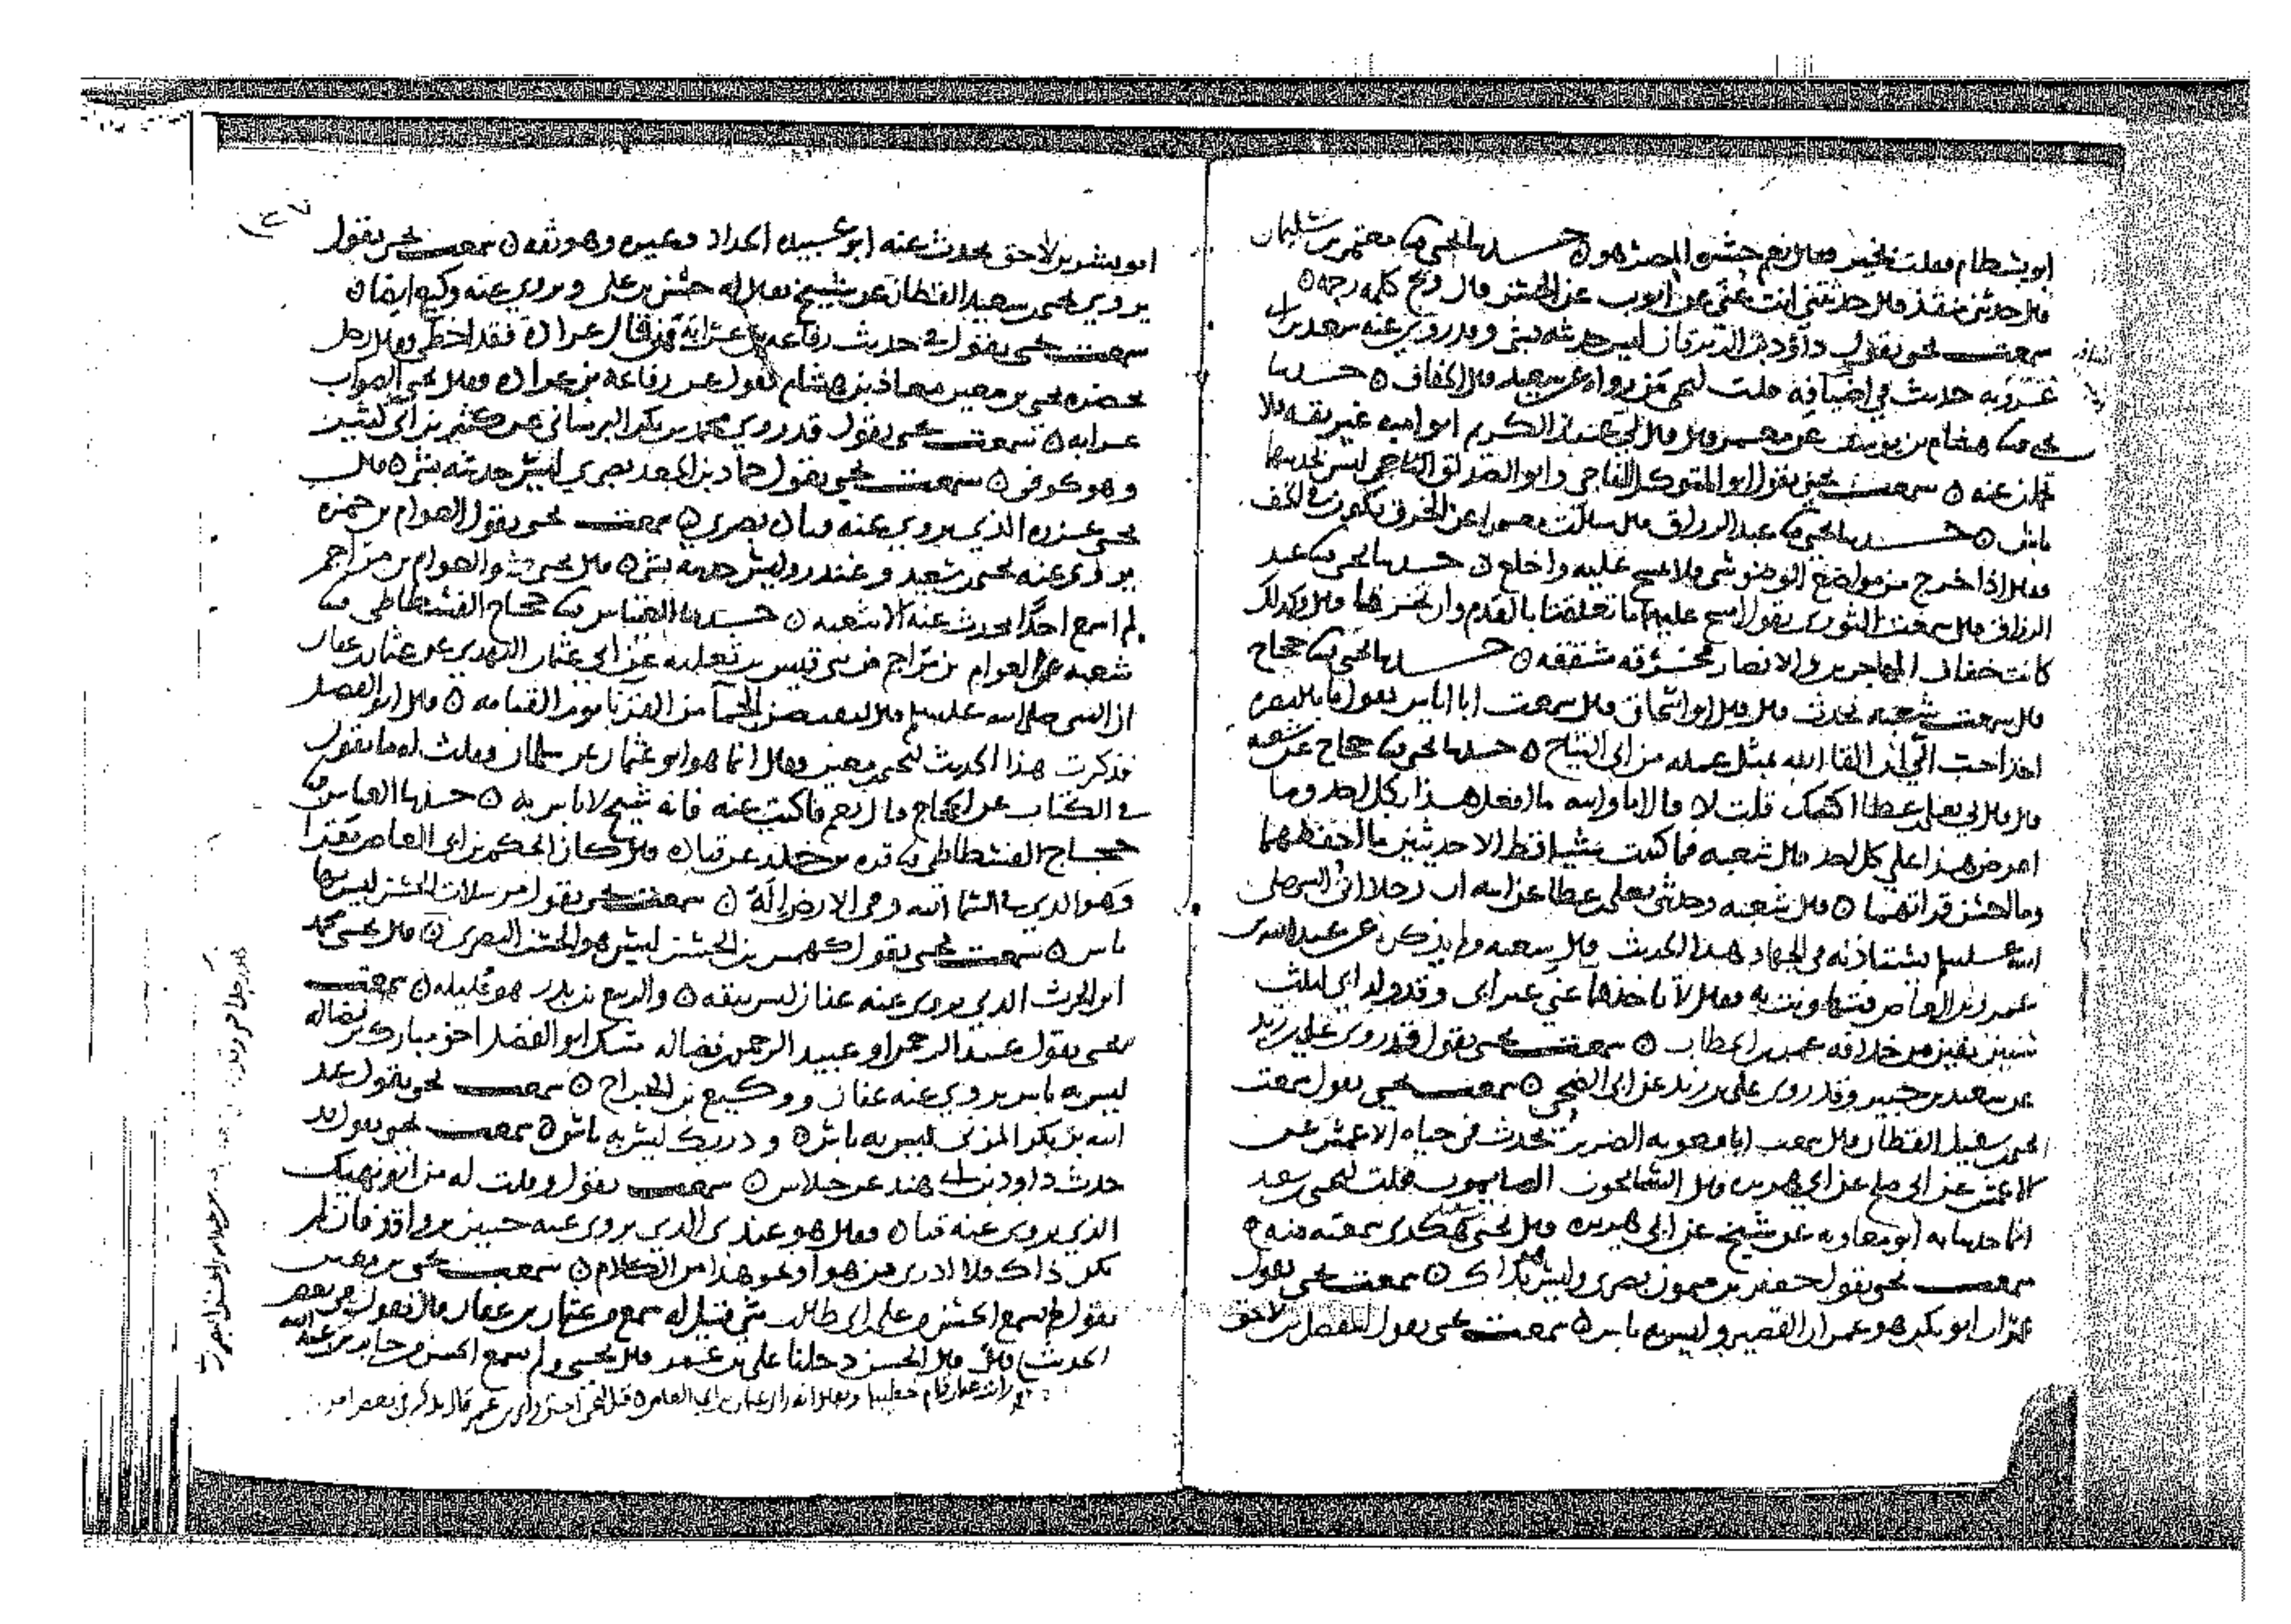 ابو بسطام فقلت نحبس فقال نعم حبس المصر هو حدثنا يحيى نا معتمر بن سليمان
قال حدثني منقذ قال حدثتني انت عني عن ايوب عن الحسن قال ويح كلمة رحمة
سمعت يحيى يقول داود بن الزبرقان ليس حديثه بشي وقد روى عنه سعيد بن ابي
عروبة حديث في قلت ليحيى من رواه عن سعيد قال الخفاف حدثنا
يحيى نا هشام بن يوسف عن معمر قال قال لي عبد الكريم ابو امية غير ثقة فلا
تحملن عنه سمعت يحيى يقول ابو المتوكل الناجي وابو الصديق الناجي ليس بحديثهما
باس حدثنا يحيى نا عبد الرزاق قال سالت معمرا عن الخرق يكون في الخف
فقال اذا خرج من مواضع الوضوء شي فلا تمسح عليه واخلع حدثنا يحيى نا عبد
الرزاق قال سمعت الثوري يقول امسح عليهما ما تعلقتا بالقدم وان تخرقا قال وكذلك
كانت خفاف المهاجرين والانصار مخرقة مشققة حدثنا يحيى نا حجاج
قال سمعت شعبة يحدث قال قال ابو اسحاق قال سمعت ابا اياس يقول ما بالبصرة
احد احب الي ان القا الله بمثل عمله من ابي التياح حدثنا يحيى نا حجاج عن شعبة
قال قال لي يعلى بن عطا اكتمك قلت لا قال اما والله ما افعل هذا بكل احد وما
اعرض هذا على كل احد قال شعبة فما كتبت شيا قط الا حديثين ما احفظهما
وما احسن قراتهما قال شعبة وحدثني يعلى بن عطا عن ابيه ان رجلا اتى النبي صلى
الله عليه وسلم يستاذنه في الجهاد هذا الحديث قال شعبة ولم يذكره عن عبد الله بن
عمرو بن العاص فقال لا تاخذها عني عن ابي وقد ولد ابي لثلث
سنين بقين من خلافة عمر بن الخطاب سمعت يحيى يقول قد روى علي بن زيد
عن سعيد بن جبير وقد روى علي بن زيد عن ابي الضحى سمعت يحيى يقول سمعت
يحيى بن سعيد القطان قال سمعت ابا معوية الضرير يحدث في حياة الاعمش عن
الاعمش عن ابي صلح عن ابي هريرة قال السائحون الصايمون فقلت ليحيى بن سعيد
انما حدثنا به ابو معاوية عن شيخ عن ابي هريرة قال يحيى هكذى سمعته منه
سمعت يحيى يقول جعفر بن ميمون بصري وليس هو بذاك سمعت يحيى يقول
عمران ابو بكر هو عمران القصير وليس به باس سمعت يحيى يقول المفضل بن لاحق
ابو بشر بن لاحق يحدث عنه ابو عبيدة الحداد ومعين وهو ثقة سمعت يحيى يقول
يروي يحيى بن سعيد القطان عن شيخ يقال له حسن بن علي ويروي عنه وكيع ايضا
سمعت يحيى يقول في حديث رفاعة بن عرابة من قال عرادة فقد اخطى فقال رجل
بحضرة يحيى بن معين معاذ بن هشام يقول عن رفاعة بن عرادة فقال يحيى الصواب
عرابة سمعت يحيى يقول قد روى محمد بن بكر البرساني عن كثير بن ابي كثير
وهو كوفي سمعت يحيى يقول حماد بن الجعد بصري ليس حديثه بشي قال
يحيى عزرة الذي يروي عنه قتادة بصري سمعت يحيى يقول العوام بن حمزة
يروي عنه يحيى بن سعيد وغندر وليس حديثه بشي قال يحيى بن معين والعوام بن مراجم
لم اسمع احدا يحدث عنه الا شعبة حدثنا العباس نا حجاج الفسطاطي نا
شعبة عن العوام بن مراجم من بني قيس بن ثعلبة عن ابي عثمان النهدي عن عثمان بن عفان
ان النبي صلى الله عليه وسلم قال ليقتصن الجما من القرنا يوم القيامة قال ابو الفضل
فذكرت هذا الحديث ليحيى بن معين فقال انما هو ابو عثمان عن سلمان وقلت له ما تقول
في الكتاب عن الحجاج قال نعم فاكتب عنه فانه شيخ لا باس به حدثنا العباس نا
حجاج الفسطاطي نا قرة بن خلد عن قتادة قال كان الحكم بن ابي العاص يقرا
وهو الذي في السما الله وفي الارض اله سمعت يحيى يقول مرسلات الحسن ليس بها
باس سمعت يحيى يقول كهمس بن الحسن ليس هو الحسن البصري قال يحيى محمد
ابو الحرث الذي يروي عنه عفان ليس بثقة والربيع بن بدر هو عليلة سمعت
يحيى يقول عبد الرحمن او عبيد الرحمن بن فضالة شك ابو الفضل اخو مبارك بن فضالة
ليس به باس يروي عنه عفان ووكيع بن الجراح سمعت يحيى يقول عبد
الله بن بكر المزني ليس به باس ودريك ليس به باس سمعت يحيى يقول قد
حدث داود بن ابي هند عن خلاس سمعت يقول وقلت له من ابو نهيك
الذي يروي عنه قتادة فقال هو عندي الذي يروي عنه حسين بن واقد فان لم
يكن ذاك فلا ادري من هو او نحو هذا من الكلام سمعت يحيى بن معين
يقول لم يسمع الحسن من علي بن ابي طالب شي قيل له سمع من عثمان بن عفان قال يقول في بعض
الحديث قال قال الحسن دخلنا على بن عمر قال يحيى ولم يسمع الحسن من جابر بن عبد الله
رايت عثمان قام خطيبا